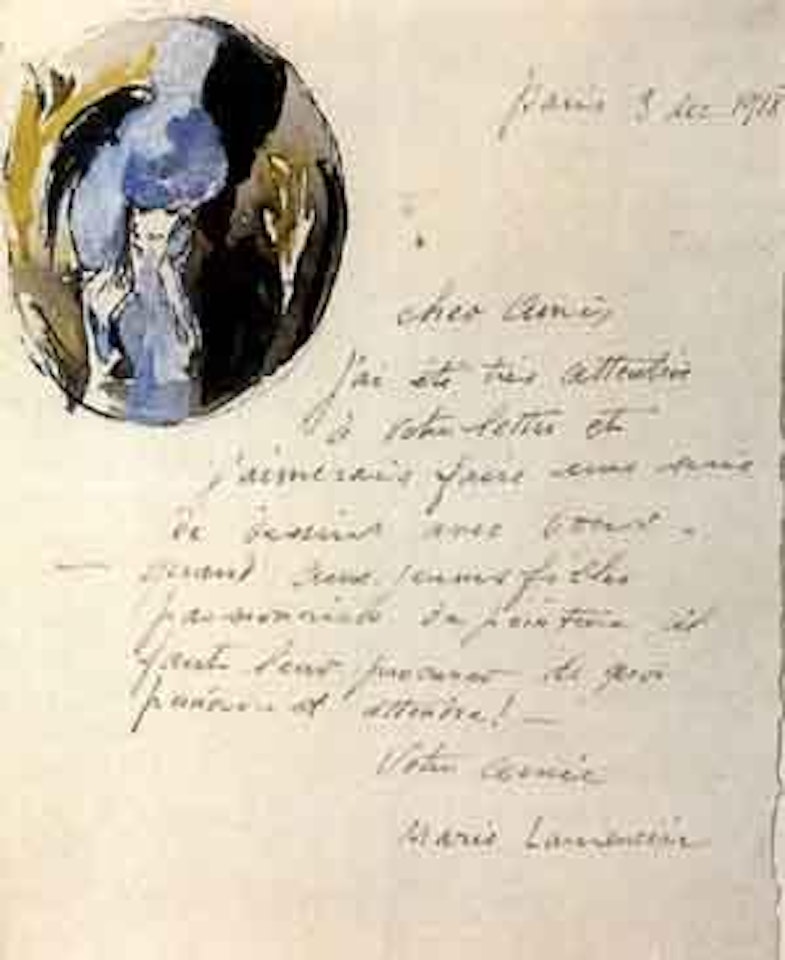 Paris 3 dec 1918
cher ami,
j'ai été très attentive
à votre lettre et
j'aimerais faire une série
de dessins avec vous.
— quant aux jeunes filles
passionnées de peinture il
faut leur procurer de quoi
peindre et attendre! —
Votre amie
Marie Laurencin